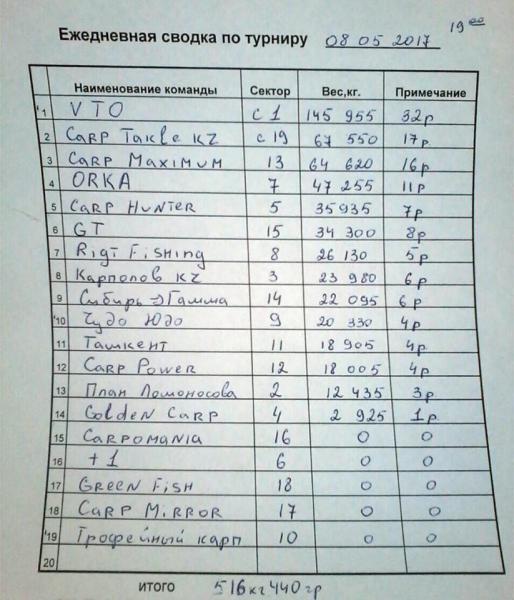 19 00
Ежедневная сводка по турниру 08 05 2017
Наименование команды Сектор Вес,кг. Примечание
1 VTO с 1 145 955 32р
2 Carp Takle KZ с 19 67 550 17р
3 Carp Maximum 13 64 620 16р
4 ORKA 7 47 255 11р
5 Carp Hunter 5 35935 7р
6 GT 15 34 300 8р
7 Rigt Fishing 8 26 130 5р
8 Карполов KZ 3 23 980 6р
9 Сибирь-Гамма 14 22 095 6р
10 Чудо Юдо 9 20 330 4р
11 Ташкент 11 18 905 4р
12 Carp Power 12 18 005 4р
13 План Ломоносова 2 12 435 3р
14 Golden Carp 4 2 925 1р
15 Carpomania 16 0 0
16 +1 6 0 0
17 Green Fish 18 0 0
18 Carp Mirror 17 0 0
19 Трофейный карп 10 0 0
20
итого 516кг 440гр